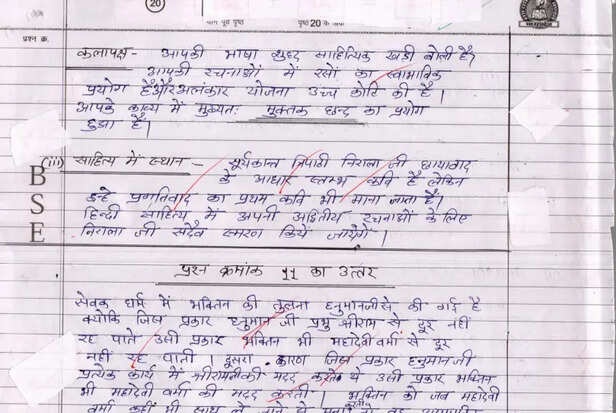 20
पृष्ठ 20 के अंक
प्रश्न क्र.
कलापक्ष - आपकी भाषा शुद्ध साहित्यिक खड़ी बोली है।
आपकी रचनाओं में रसों का स्वाभाविक
प्रयोग है और अलंकार योजना उच्च कोटि की है।
आपके काव्य में मुख्यतः मुक्तक छन्द का प्रयोग
हुआ है।
(iii) साहित्य में स्थान - सूर्यकान्त त्रिपाठी निराला जी छायावाद
के आधार स्तम्भ कवि है लेकिन
इन्हे प्रगतिवाद का प्रथम कवि भी माना जाता है।
हिन्दी साहित्य में अपनी अद्वितीय रचनाओं के लिए
निराला जी सदैव स्मरण किये जायेंगे।
BSE
प्रश्न क्रमांक 11 का उत्तर
सेवक धर्म में भक्तिन की तुलना हनुमानजी से की गई है
क्योकि जिस प्रकार हनुमान जी प्रभु श्रीराम से दूर नहीं
रह पाते उसी प्रकार भक्तिन भी महादेवी वर्मा से दूर
नहीं रह पाती। दूसरा कारण जिस प्रकार हनुमानजी
प्रत्येक कार्य में श्रीरामजी की मदद करते थे उसी प्रकार भक्तिन
भी महादेवी वर्मा की मदद करती। भक्तिन को जब महादेवी
वर्मा कहीं भी साथ ले जाने से